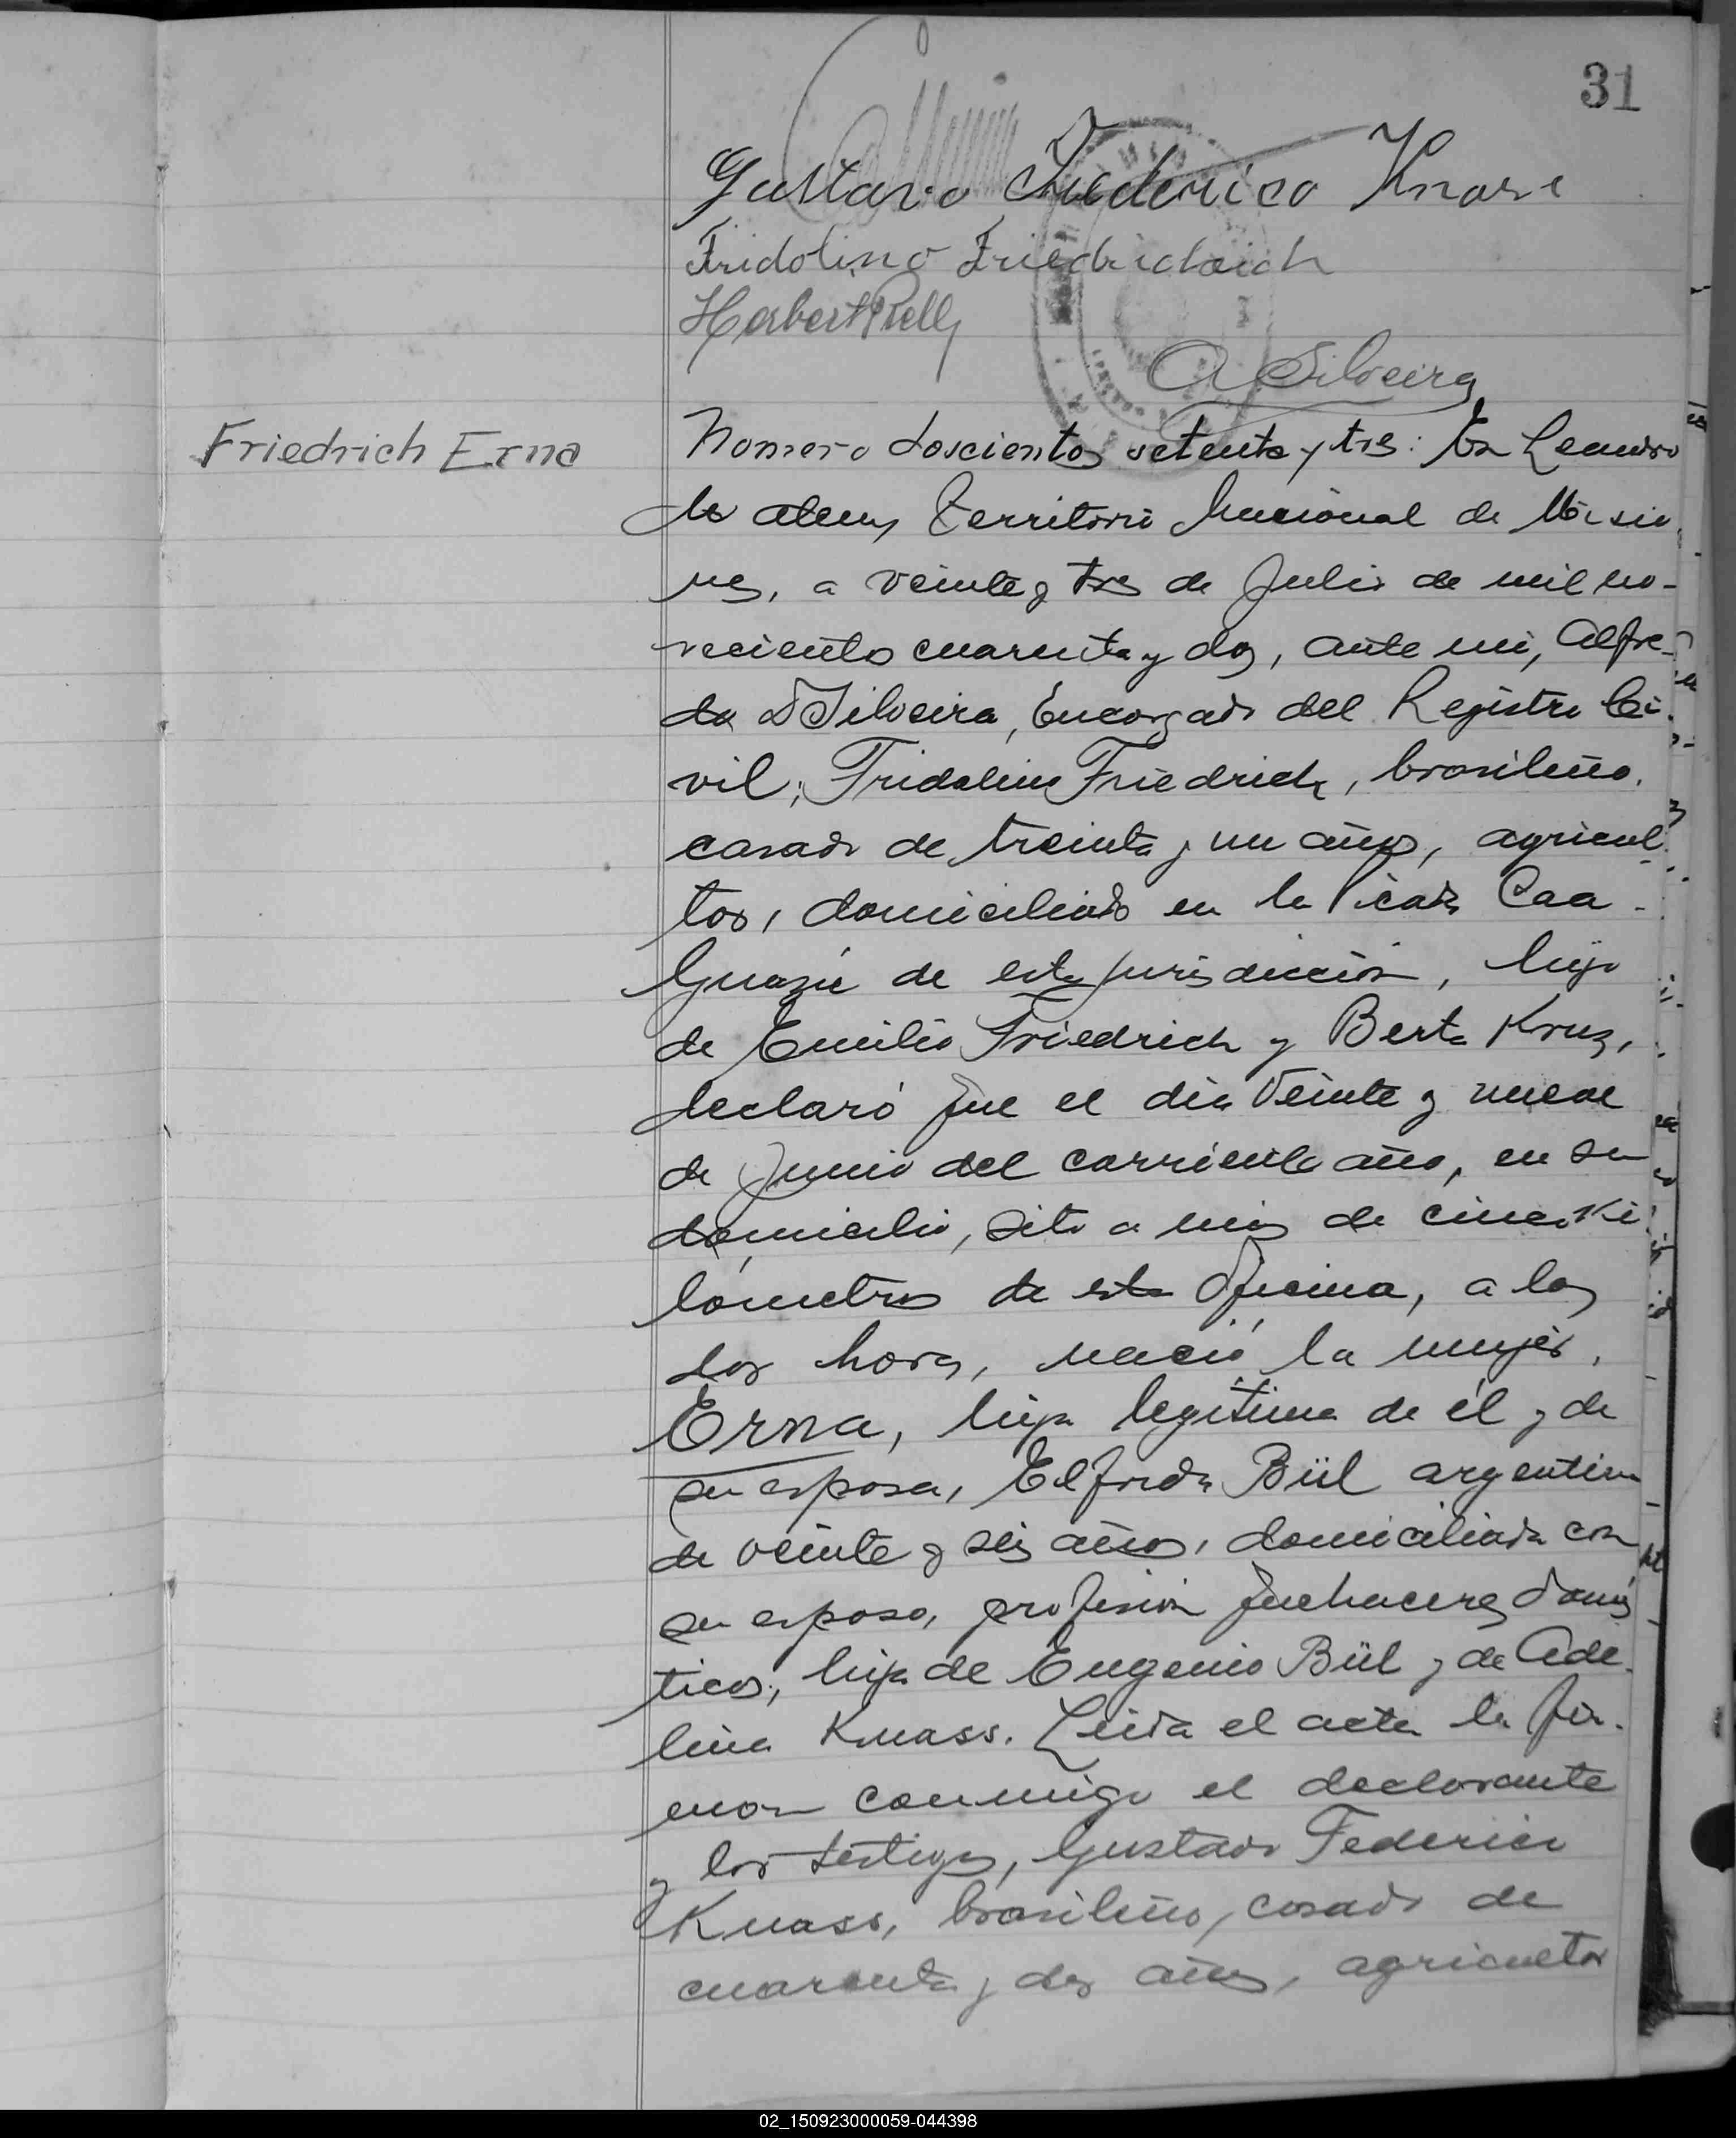 31
Gustavo Federico Knase
Fridolino Friedrich
Herbert
A Silveira
Friedrich Erna
Nomero doscientos setenta y tres: En Leandro
de alem, Territorio Nacional de Misio
nes, a veinte y tres de Julio de mil no-
veciento cuarenta y dos, ante mi, Alfre-
do D Silveira, Encargado del Registro Ci-
vil; Fridolino Friedrich, brasileño,
casado de treinta y un años, agricul
tor, domiciliado en la Picada Caa-
Guazú de esta jurisdicción, hijo
de Emilio Friedrich y Berta Kruz,
declaró que el dia veinte y nueve
de Junio del corriente año, en su
domicilio, sito a mas de cinco Ki
lómetros de esta Oficina, a las
dos horas, nació la mujer,
Erna, hija legitima de él y de
su esposa, Elfrida Bül argentina
de veinte y seis años, domiciliada con
su esposo, profesion quehaceres domés
ticos, hija de Eugenio Bül y de Ade-
lina Knass. Leida el acta la fir-
maron conmigo el declarante
y los testigos, Gustavo Federico
Knass, brasileño, casado de
cuarenta y dos años, agricultor
02_150923000059-044398